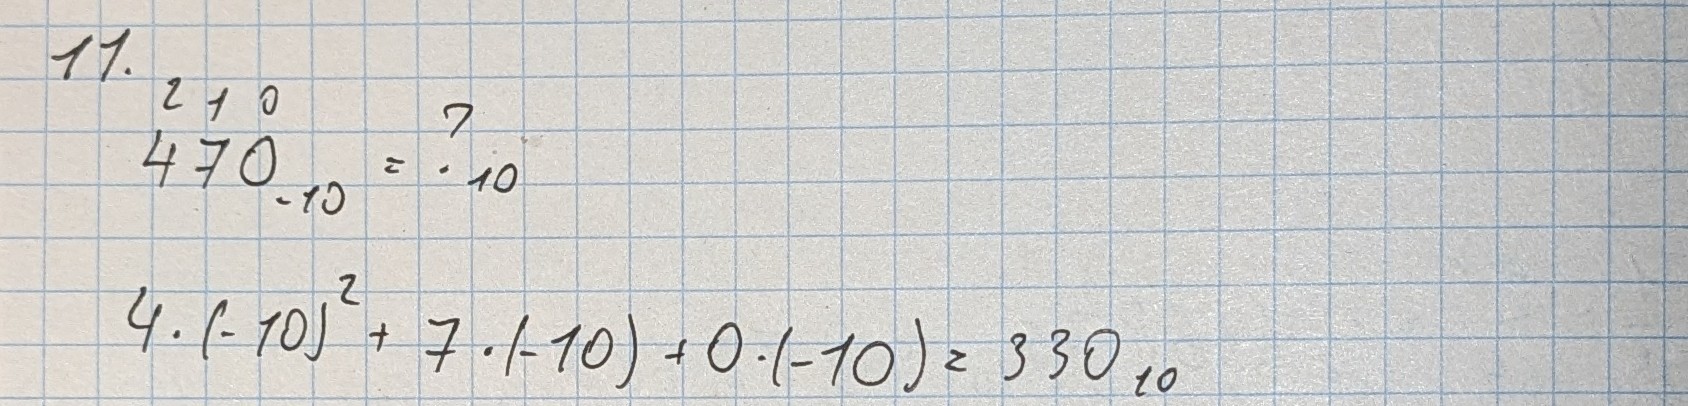 11.
2 1 0
470₋₁₀ = ?₁₀
4·(-10)² + 7·(-10) + 0·(-10) = 330₁₀